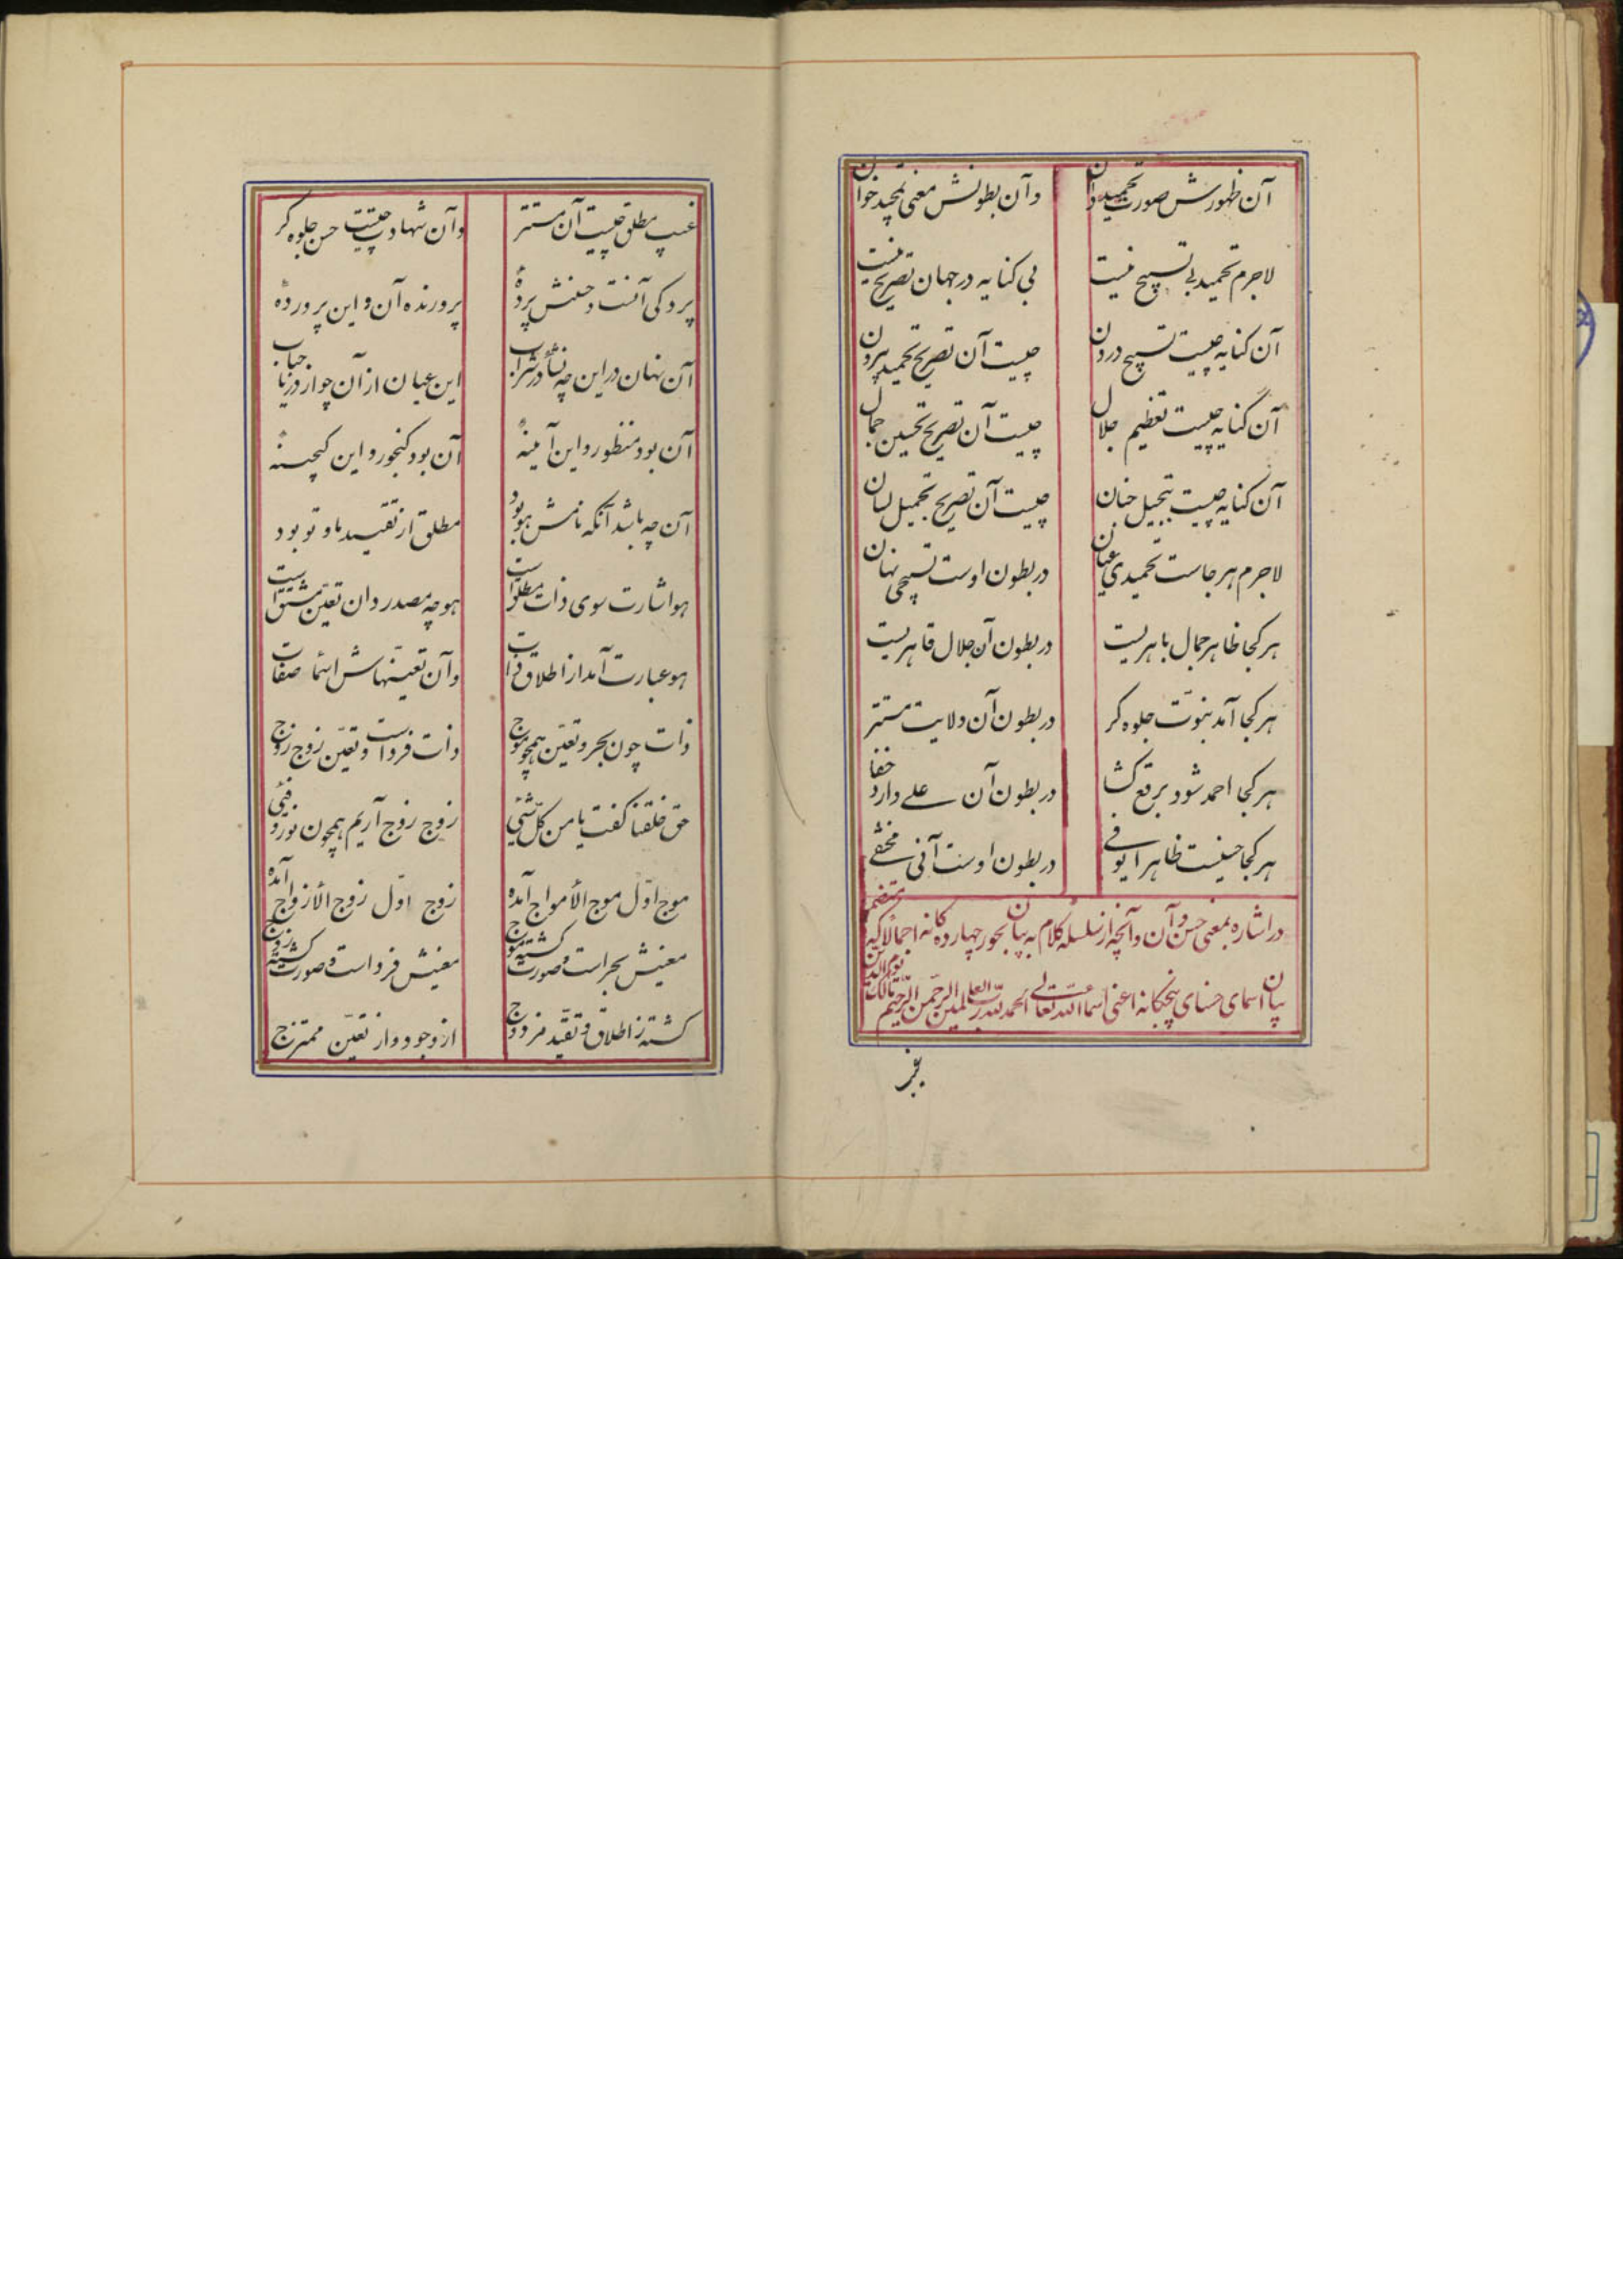 آن ظهورش صورت تحمید دان
وآن بطونش معنی تمجید خوان
لاجرم تحمید بی تسبیح نیست
بی کنایه در جهان تصریح نیست
آن کنایه چیست تسبیح درون
چیست آن تصریح تحمید برون
آن کنایه چیست تعظیم جلال
چیست آن تصریح تحسین جمال
آن کنایه چیست تبجیل جنان
چیست آن تصریح تجمیل لسان
لاجرم هرجاست تحمیدی عیان
در بطون اوست تسبیحی نهان
هر کجا ظاهر جمال باهریست
در بطون آن جلال قاهریست
هر کجا آمد نبوّت جلوه کر
در بطون آن ولایت مستتر
هر کجا احمد شود برقع کشا
در بطون آن علی دارد خفا
هر کجا حسنیست ظاهر ایوفی
در بطون اوست آنی مختفی
در اشاره بمعنی حسن وآن وآنچه از سلسله کلام به بیان بحور چهارده کانه اجمالا کند متضمن
بیان اسمای حسنای پنجکانه اعنی اسم الله تعالی الحمد لله رب العلمین الرحمن الرحیم مالک یوم الدین
غیب
غیب مطلق چیست آن مستتر
وآن شهادت چیست حسن جلوه کر
پردکی آنست و حسنش پردهٔ
پرورنده آن و این پروردهٔ
آن نهان در این چه نشأ در شراب
این عیان از آن چو از دریا حباب
آن بود منظور و این آمینهٔ
آن بود کنجور و این کنجینهٔ
آن چه باشد آنکه نامش هو بود
مطلق از تقیید ما و تو بود
هو اشارت سوی ذات مطلق است
هو چه مصدر دان تعیّن مشتق است
هو عبارت آمد از اطلاق ذات
وآن تعیّنهاش اسما صفات
ذات چون بحر و تعیّن همچو موج
ذات فرد است و تعیّن زوج زوج
حق خلقنا کفت یا من کلّ شئی
زوج زوج آریم همچون نور و فئی
موج اوّل موج الأمواج آمده
زوج اوّل زوج الأزواج آمده
معنیش بحر است و صورت کشته موج
معنیش فرد است و صورت کشته زوج
کشته ز اطلاق و تقیّد مزدوج
از وجود و از تعیّن ممتزج